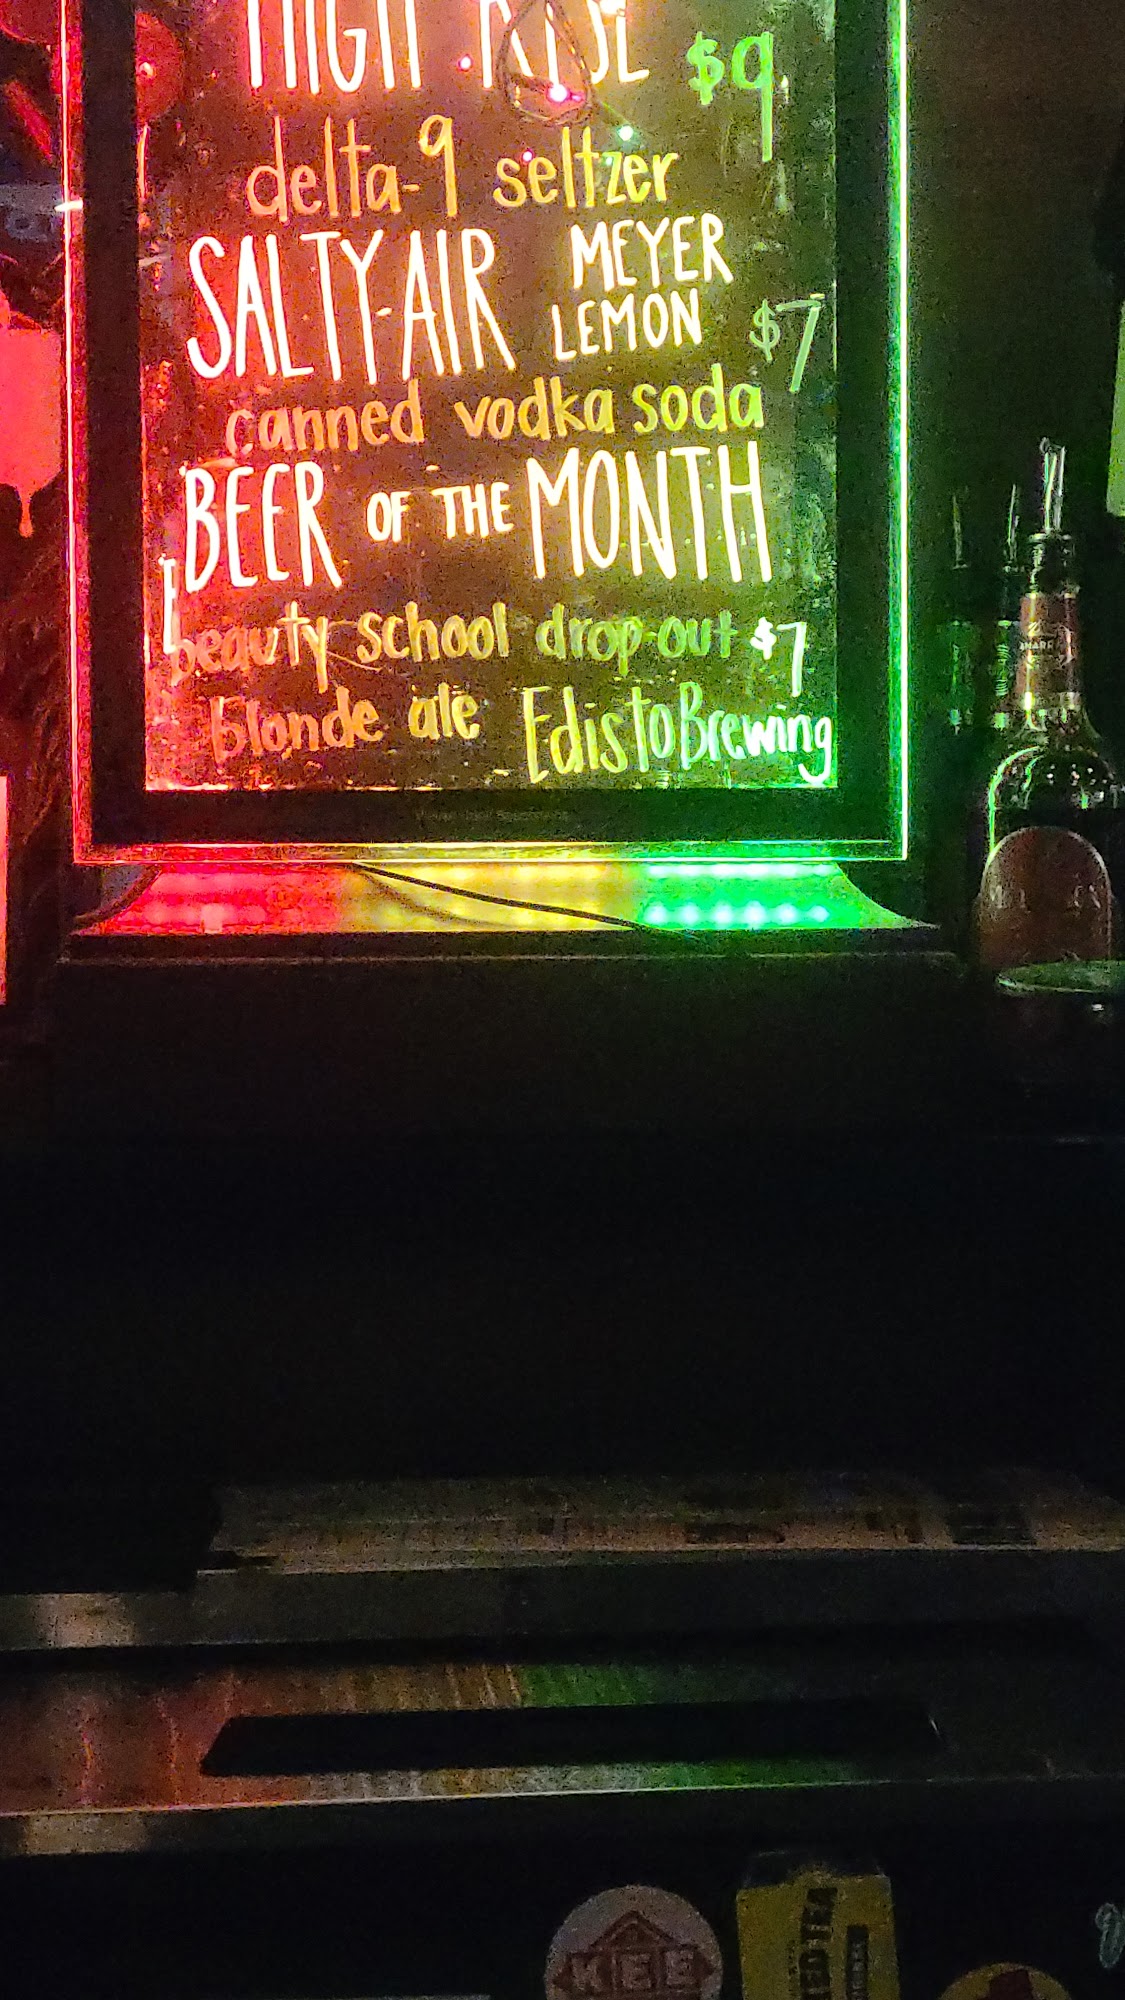 HIGH RISE $9
delta-9 seltzer
SALTY AIR MEYER
LEMON $7
canned vodka soda
BEER OF THE MONTH
beauty school drop-out $7
blonde ale Edisto Brewing
KEE